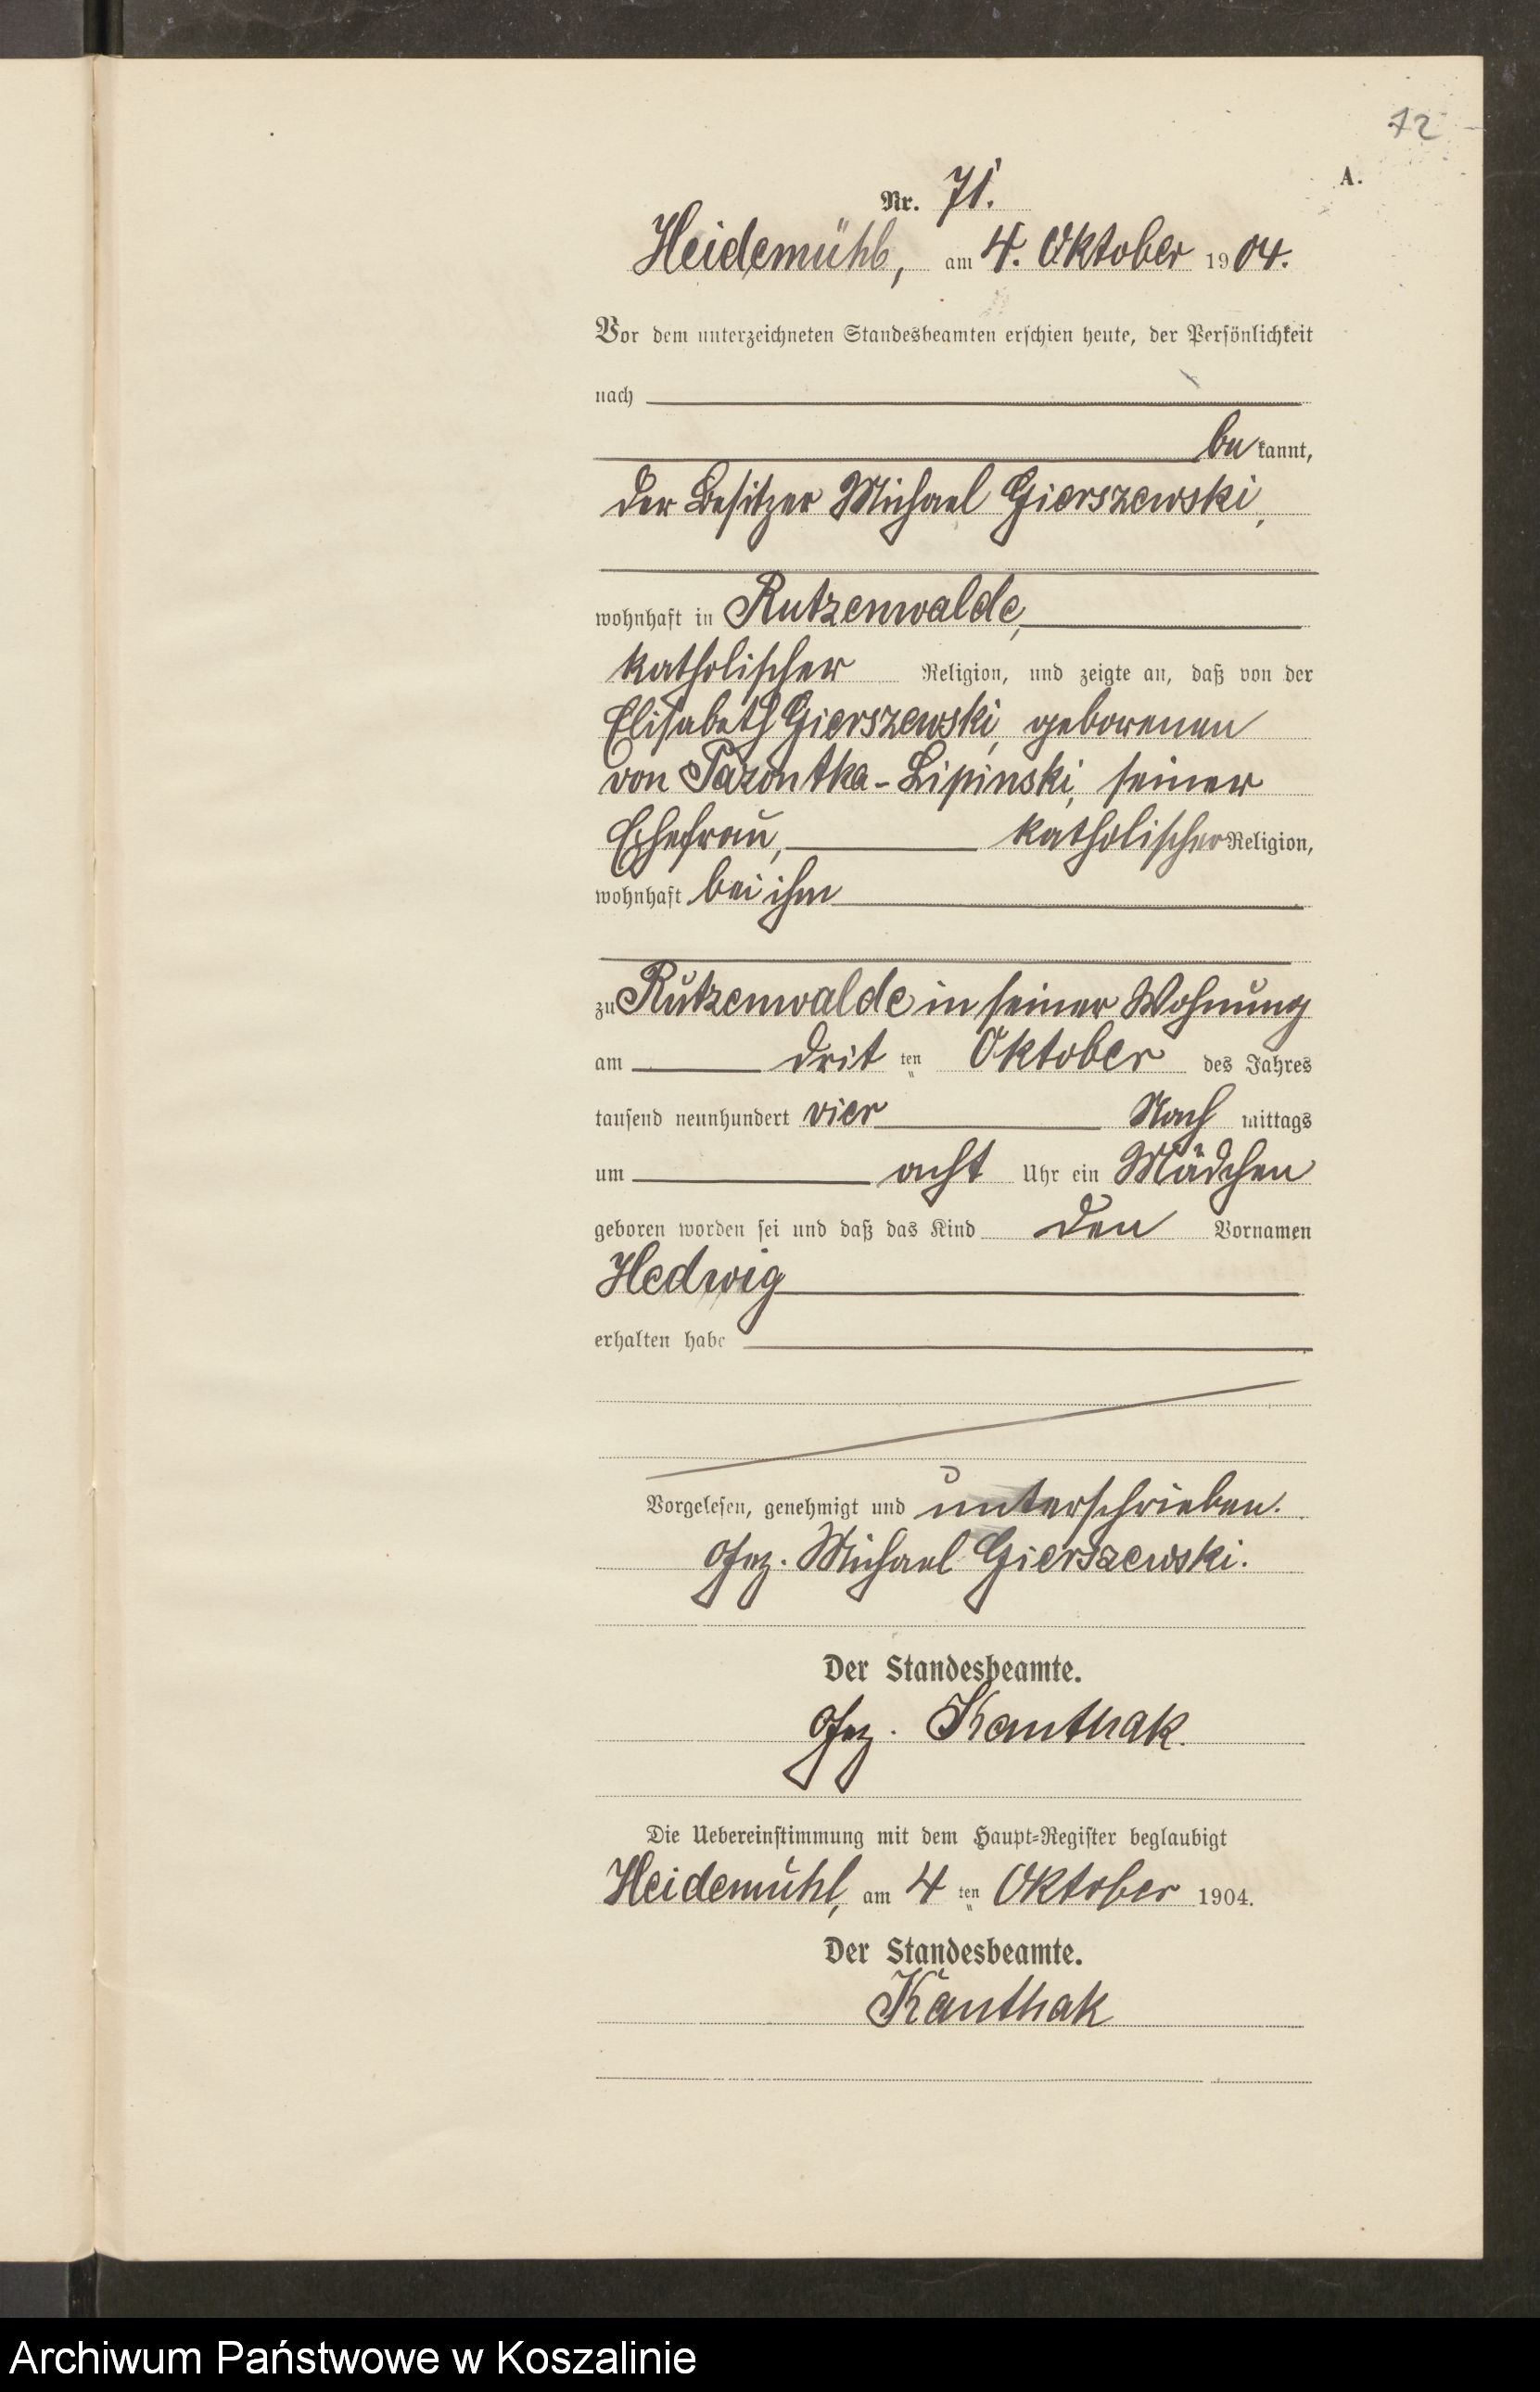 72
A.
Nr. 71.
Heidemühl, am 4. Oktober 1904.
Vor dem unterzeichneten Standesbeamten erschien heute, der Persönlichkeit
nach
be kannt,
der Besitzer Michael Gierszewski,
wohnhaft in Rutzenwalde,
katholischer Religion, und zeigte an, daß von der
Elisabeth Gierszewski, geborenen
von Pazontka-Lipinski, seiner
Ehefrau, katholischer Religion,
wohnhaft bei ihm
zu Rutzenwalde in seiner Wohnung
am drit ten Oktober des Jahres
tausend neunhundert vier Nach mittags
um acht Uhr ein Mädchen
geboren worden sei und daß das Kind den Vornamen
Hedwig
erhalten habe
Vorgelesen, genehmigt und unterschrieben.
Gez. Michael Gierszewski.
Der Standesbeamte.
Gez. Kanthak.
Die Uebereinstimmung mit dem Haupt-Register beglaubigt
Heidemühl, am 4 ten Oktober 1904.
Der Standesbeamte.
Kanthak
Archiwum Państwowe w Koszalinie